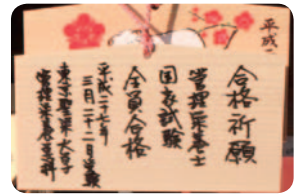 合格祈願
管理栄養士
国家試験
全員合格
平成二十七年
三月二十二日受験
東京聖栄大学
管理栄養学科
平成